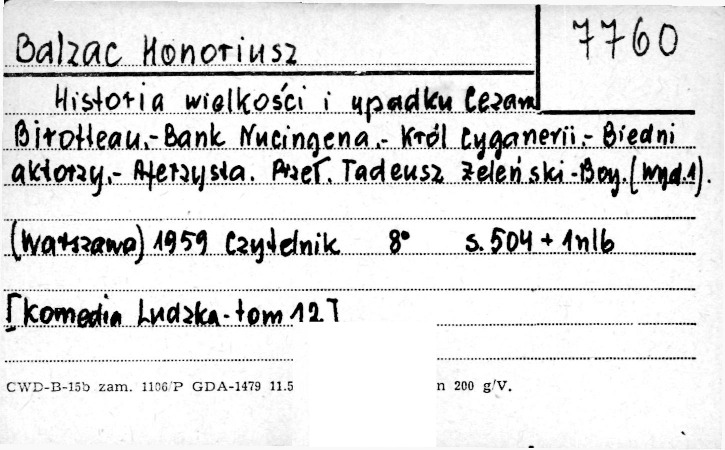 Balzac Honoriusz
7760
Historia wielkości i upadku Cezara
Birotteau.-Bank Nucingena.- Król Cyganerii.- Biedni
aktorzy.- Aferzysta. Przeł. Tadeusz Żeleński-Boy. (Wyd.1).
(Warszawa) 1959 Czytelnik 8° s. 504 + 1nlb
[Komedia Ludzka - tom 12]
CWD-B-15b zam. 1106/P GDA-1479 11.5
n 200 g/V.